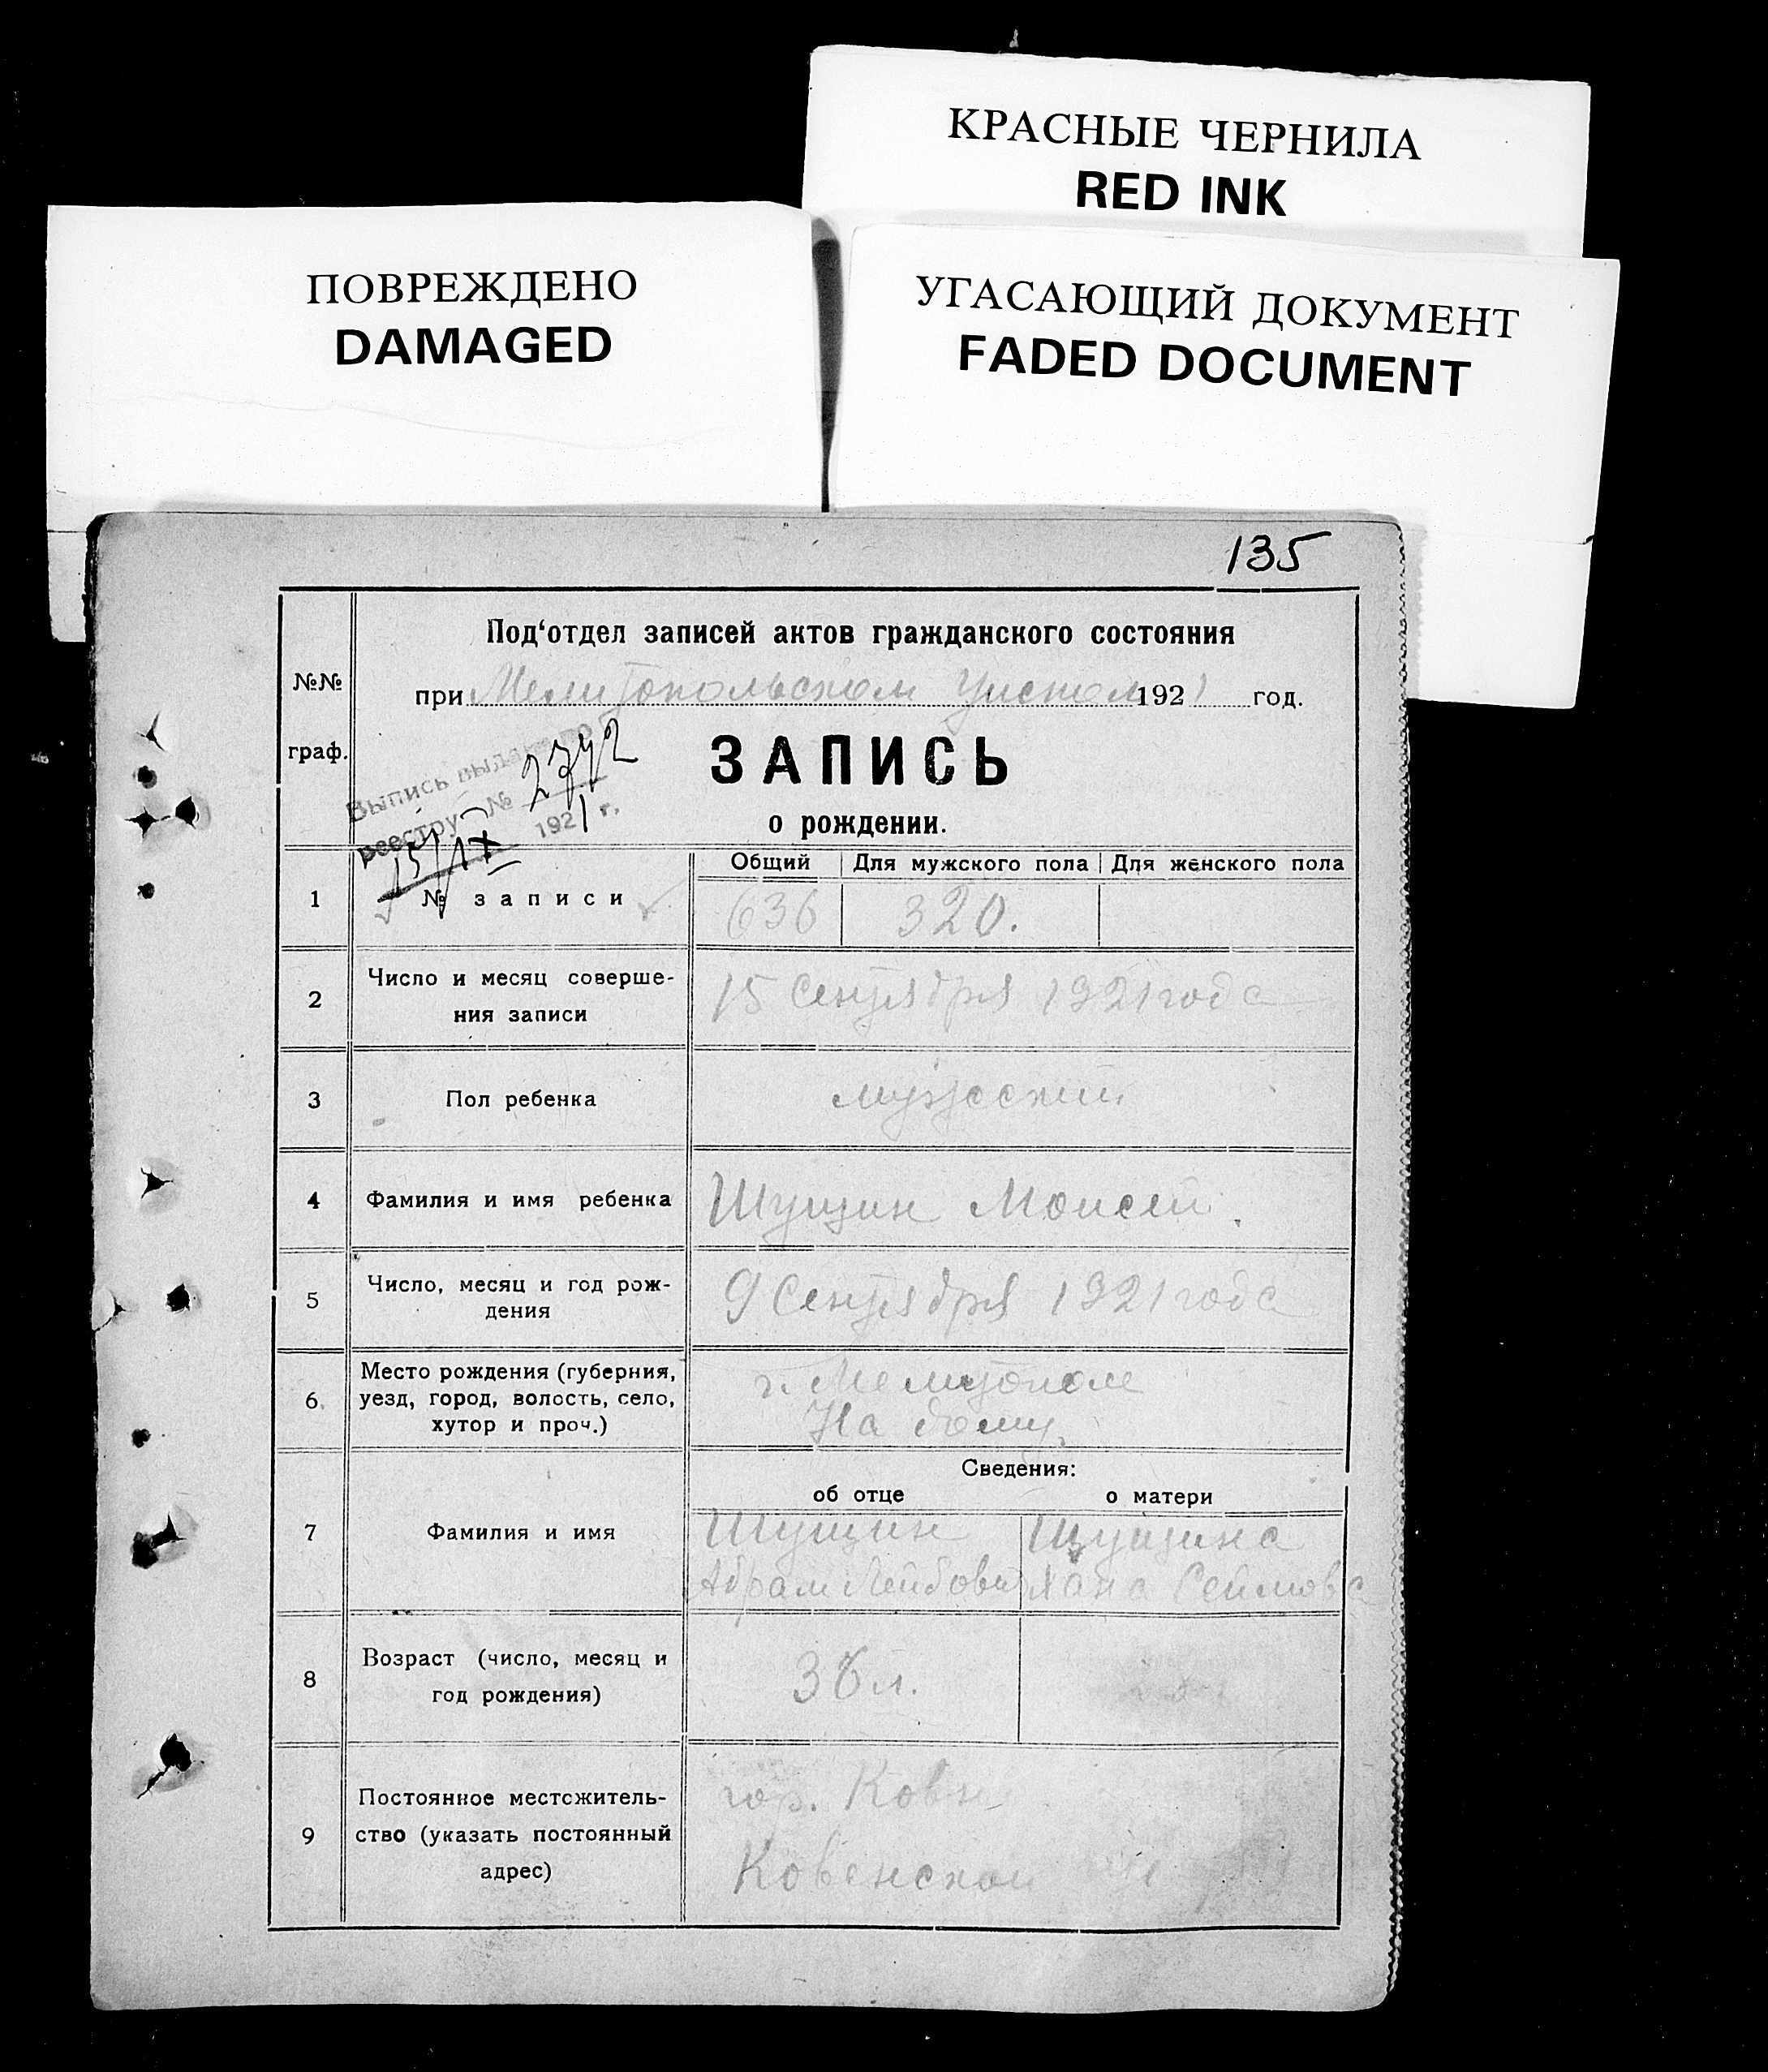 КРАСНЫЕ ЧЕРНИЛА
RED INK
ПОВРЕЖДЕНО
DAMAGED
УГАСАЮЩИЙ ДОКУМЕНТ
FADED DOCUMENT
135
Под‘отдел записей актов гражданского состояния
№№
при Мелитопольском 1921 год.
граф.
ЗАПИСЬ
о рождении.
Выпись выдана по
реестру № 2772
15/IX 1921 г.
Общий Для мужского пола Для женского пола
1 № записи 636 320.
2 Число и месяц соверше-
ния записи
15 Сентября 1921 года
3 Пол ребенка мужской
4 Фамилия и имя ребенка Шущин Моисей.
5 Число, месяц и год рож-
дения
9 Сентября 1921 года
6. Место рождения (губерния,
уезд, город, волость, село,
хутор и проч.)
г. Мелитополе
На дому.
Сведения:
об отце о матери
7 Фамилия и имя
Шущин Шущина
Абрам Лейбович Хана
8 Возраст (число, месяц и
год рождения)
36 л.
9 Постоянное местожитель-
ство (указать постоянный
адрес)
гор. Ковн
Ковенской